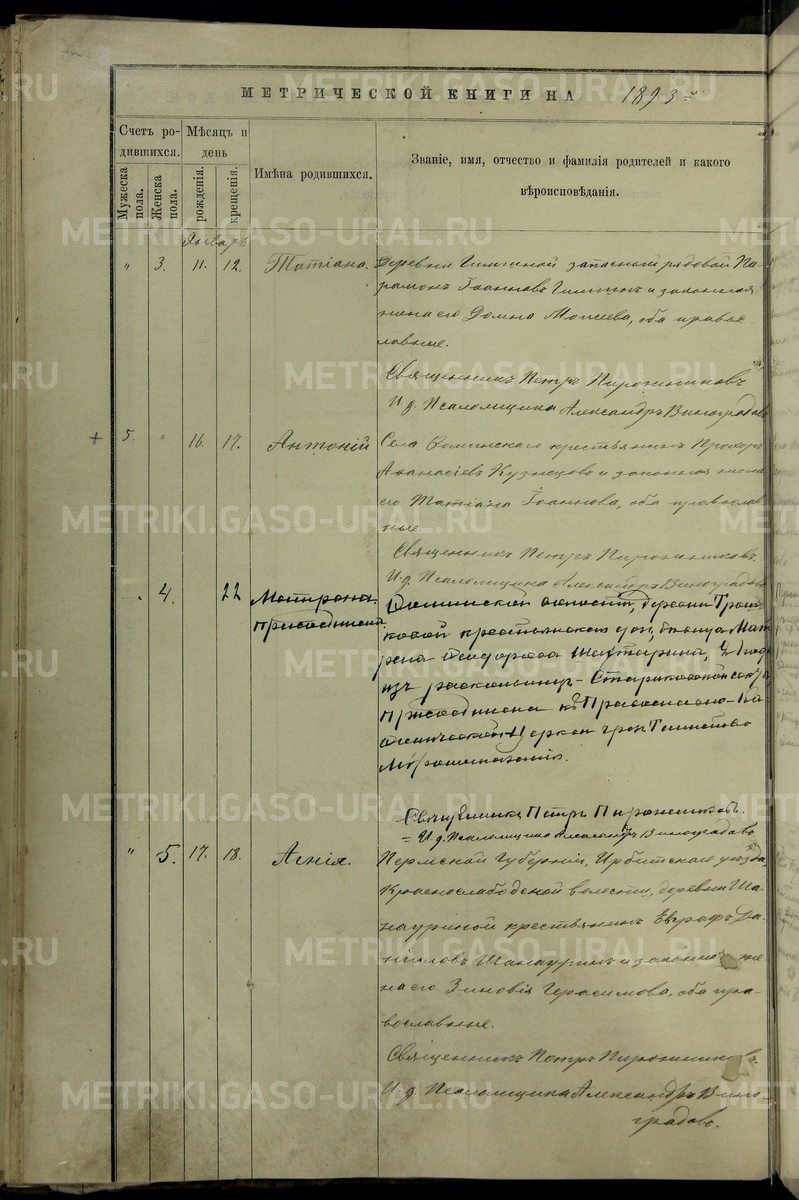 МЕТРИЧЕСКОЙ КНИГИ НА 1893
Счетъ ро-
дившихся.
Мѣсяцъ и
день
Мужеска
пола.
Женска
пола.
рожденія.
крещенія.
Имѣна родившихся.
Званіе, имя, отчество и фамилія родителей и какого
вѣроисповѣданія.
Январь
" 3. 11. 12. Татіана. Деревни запасный рядовой Па-
рамонъ Іоанновъ и законная
жена его Домна Моисеева, оба правос-
лавные.
Священникъ Петръ Пироженниковъ
И. д. Псаломщика Александръ Виноградовъ
+ 5. " 16. 17. Антоній Села Фоминскаго крестьянинъ Прохоръ
Аѳанасіевъ Кузнецовъ и законная жена
его Татіана Іоаннова, оба православ-
ные.
Священникъ Петръ Пироженниковъ.
И. д. Псаломщика Александръ Виноградовъ
" 4. 22 Матрона
присоединена
волости, деревни
крестьянская
изъ
Присоединена къ Православно-Ка-
Церкви чрезъ Таинство
Мѵропомазанія.
Священникъ Петръ Пироженниковъ.
И. д. Псаломщика Александръ Виноградовъ
" 5. 17. 18. Агнія. Пермской Губерніи, Ирбитскаго уѣзда,
Краснослабодской волости, деревни Ша-
науриной крестьянинъ Евграфъ Да-
ніиловъ Шанауринъ и законная же-
на его Зиновія Герасимова, оба пра-
вославные.
Священникъ Петръ Пироженниковъ.
И. д. Псаломщика Александръ Вино-
градовъ.
METRIKI.GASO-URAL.RU